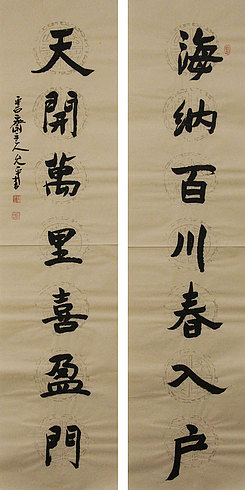 海纳百川春入户
天開萬里喜盈門